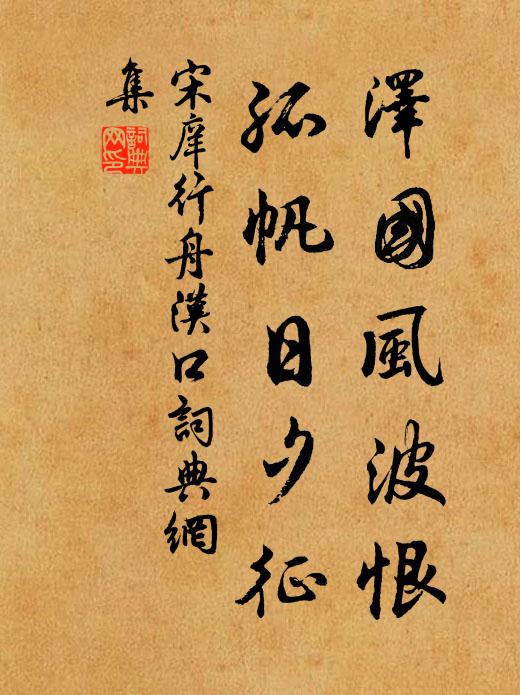 澤國風波恨
孤帆日夕征
宋庠行舟漢口詞典網
集
詞典
网印